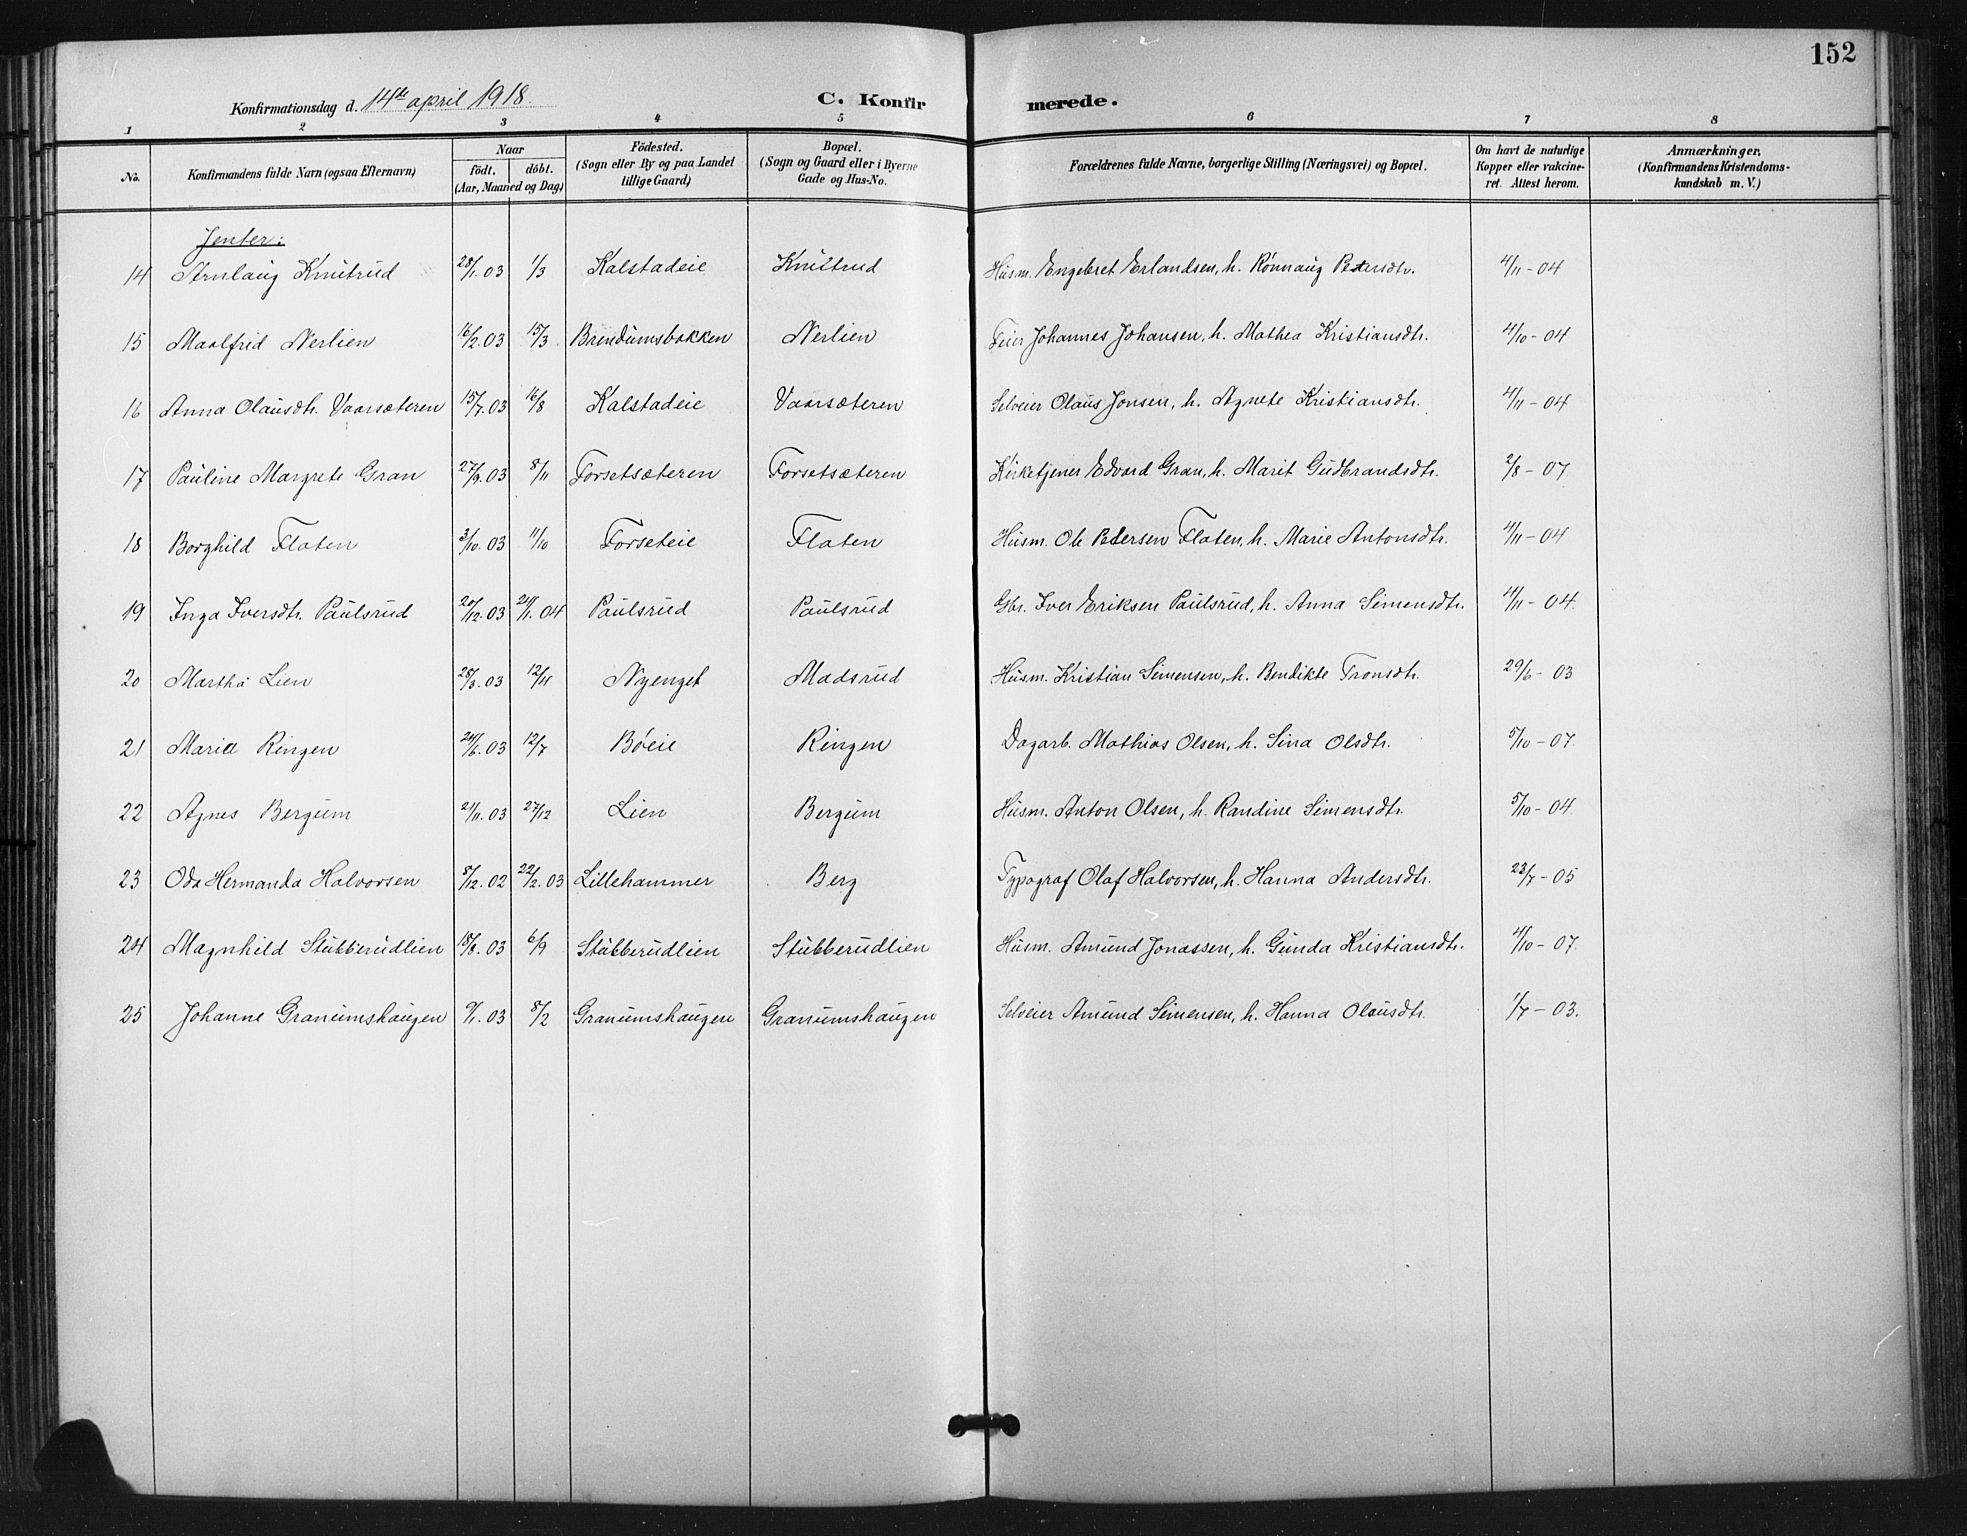 152
Konfirmationsdag d. 14de april 1918. C. Konfirmerede.
1 2 3 4 5 6 7 8
No. Konfirmandens fulde Navn (ogsaa Efternavn) Naar födt. döbt. (Aar, Maaned og Dag) Födested. (Sogn eller By og paa Landet tillige Gaard) Bopæl. (Sogn og Gaard eller i Byerne Gade og Hus-No. Forældrenes fulde Navne, borgerlige Stilling (Næringsvei) og Bopæl. Om havt de naturlige Kopper eller vakcineret. Attest herom. Anmærkninger, (Konfirmandens Kristendomskundskab m. V.)
Jenter:
14 Arnlaug Knutrud 28/1.03 1/3 Kalstadeie Knutrud Husm. Engebret Erlandsen, h. Rønnaug Pedersdtr. 4/11-04
15 Maalfrid Nerlien 16/2.03 15/3 Brendumsbakken Nerlien Feier Johannes Johansen, h. Mathea Kristiansdtr. 4/10-04
16 Anna Olausdtr. Vaarsæteren 15/7.03 16/8 Kalstadeie Vaarsæteren Selveier Olaus Jonsen, h. Agnete Kristiansdtr. 4/11-04
17 Pauline Margrete Gran 27/9.03 8/11 Forsetsæteren Forsetsæteren Kirketjener Edvard Gran, h. Marit Gudbrandsdtr. 2/8-07
18 Borghild Flaten 3/10.03 11/10 Forseteie Flaten Husm. Ole Pedersen Flaten, h. Marie Antonsdtr. 4/11-04
19 Inga Iversdtr. Paulsrud 20/12.03 24/1.04 Paulsrud Paulsrud Gbr. Iver Eriksen Paulsrud, h. Anna Simensdtr. 4/11-04.
20 Martha Lien 28/8.03 12/11 Nyenget Madsrud Husm. Kristian Simensen, h. Bendikte Tronsdtr. 29/6-03
21 Maria Ringen 24/6.03 12/7 Bøeie Ringen Dagarb. Mathias Olsen, h. Sina Olsdtr. 5/10-07.
22 Agnes Bergum 21/11.03 27/12 Lien Bergum Husm. Anton Olsen, h. Randine Simensdtr. 5/10-04
23 Oda Hermanda Halvorsen 8/12.02 22/2.03 Lillehammer Berg Typograf Olaf Halvorsen, h. Hanna Andersdtr. 23/7-05
24 Magnhild Stubberudlien 18/8.03 6/9 Stubberudlien Stubberudlien Husm. Amund Jonassen, h. Gunda Kristiansdtr. 4/10-07.
25 Johanne Granumshaugen 9/1.03 8/2 Granumshaugen Granumshaugen Selveier Amund Simensen, h. Hanna Olausdtr. 1/7-03.